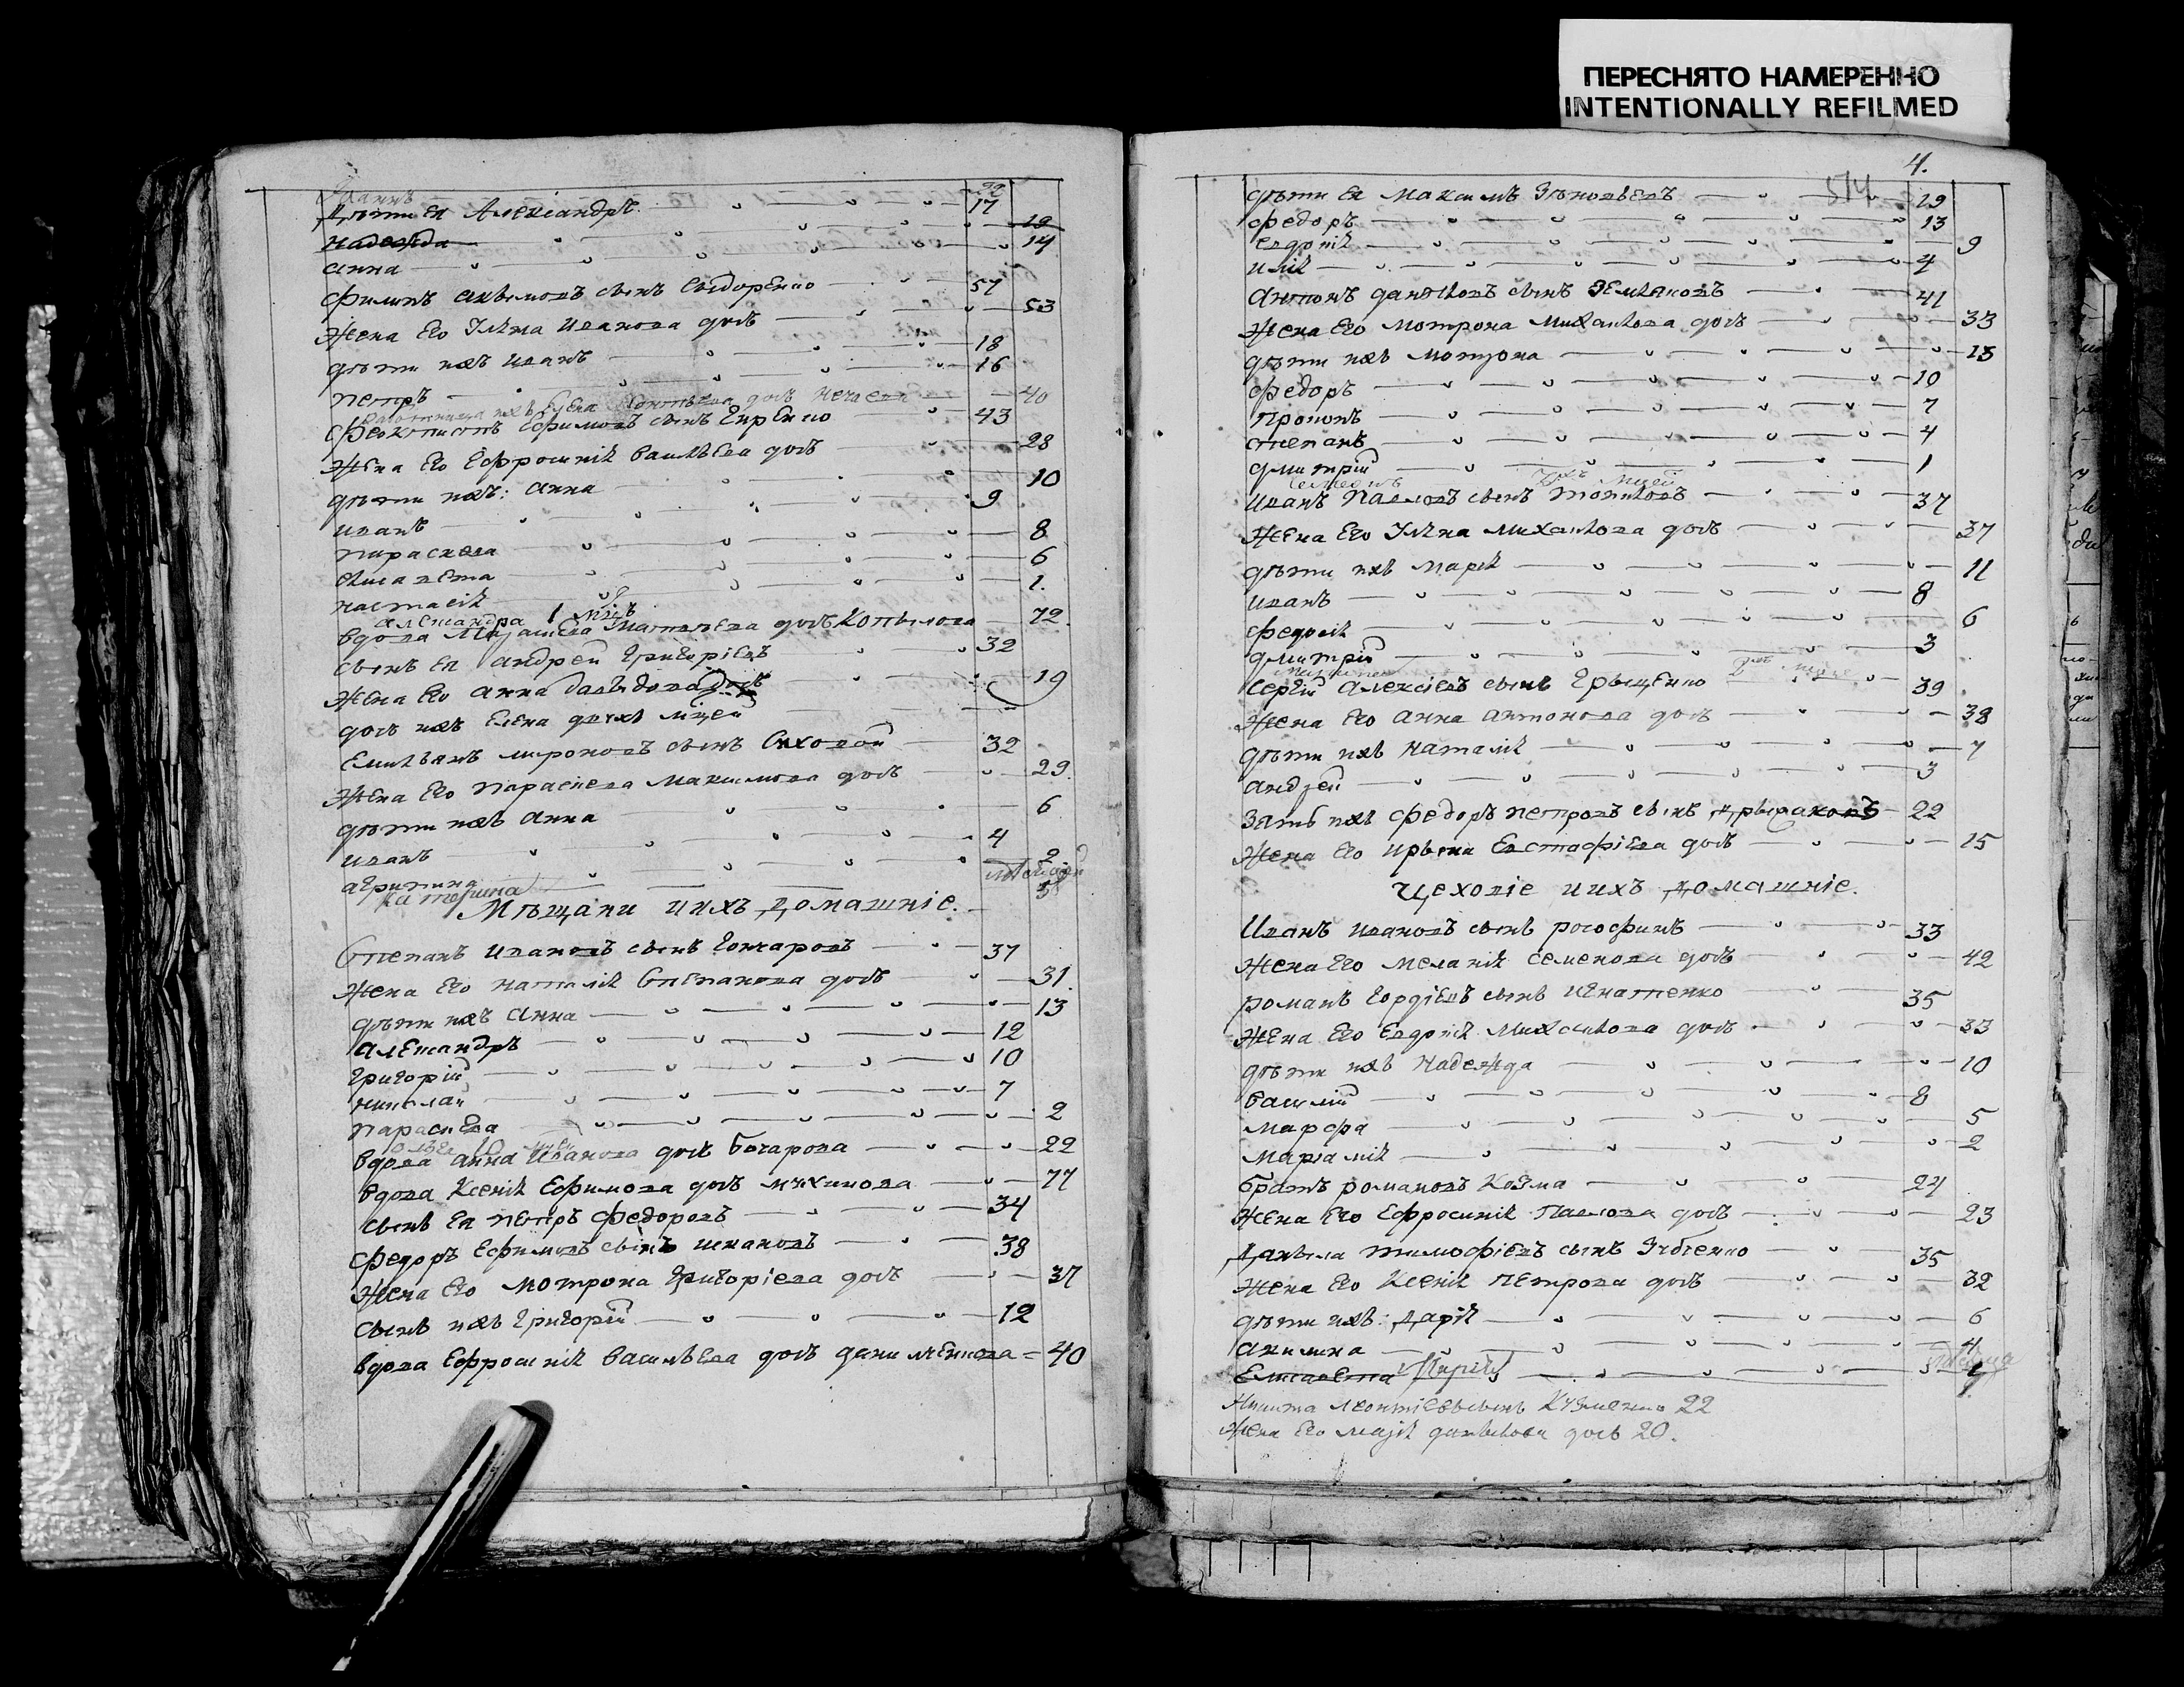 ПЕРЕСНЯТО НАМЕРЕННО
INTENTIONALLY REFILMED
22
дѣти ея Александръ 17
надежда 19
анна 14
филипъ сынъ Сидоренко 57
жена его Ульяна Иванова дочь 53
дѣти ихъ иванъ 18
петръ 16
работница ихъ Елена дочь 40
феоктистъ Ефимовъ сынъ 43
жена его Ефросинія василѣва дочь 28
дѣти ихъ: анна 10
иванъ 9
параскева 8
елисавета 6
настасія 1.
александра 1
вдова дочь Копылова 72.
сынъ ея андрей григоріевъ 32
жена его анна давыдова дочь 19
дочь ихъ Елена двухъ мцей
Емилѣанъ мироновъ сынъ 32
жена его параскева максимова дочь 29.
дѣти ихъ анна 6
иванъ 4
агрипина 2
катерина
Мѣщани ихъ домашніе.
Степанъ ивановъ сынъ гончаровъ 37
жена его наталія Степанова дочь 31.
дѣти ихъ анна 13
александръ 12
григорій 10
николай 7
параскева 2
вдова анна Иванова дочь бочарова 22
вдова Ксенія Ефимова дочь 77
сынъ ея петръ федоровъ 34
федоръ Ефимовъ сынъ 38
жена его мотрона григоріева дочь 37
сынъ ихъ григорій 12
вдова Ефросинія василѣва дочь 40
4.
514
дѣти ея максимъ 19
федоръ 13
евдокія 9
илія 4
антонъ сынъ земляковъ 41
жена его мотрона михайлова дочь 33
дѣти ихъ мотрона 13
федоръ 10
прокопъ 7
степанъ 4
дмитрій 1
семенъ мцей
иванъ павловъ сынъ 37
жена его Ульяна михайлова дочь 37
дѣти ихъ марія 11
иванъ 8
федосія 6
дмитрій 3
сергій алексіевъ сынъ грыценко 39
жена его анна антонова дочь 38
дѣти ихъ наталія 7
андрей 3
зять ихъ федоръ петровъ сынъ 22
жена его ирына Евстафіева дочь 15
цеховіе ихъ домашніе.
Иванъ ивановъ сынъ 33
жена его меланія семенова дочь 42
романъ гордіевъ сынъ игнатенко 35
жена его михайлова дочь 33
дѣти ихъ надежда 10
василій 8
марфа 5
2
братъ романовъ козма 24
жена его Ефросинія Павлова дочь 23
данила тимофіевъ сынъ 35
жена его Ксенія петрова дочь 32
дѣти ихъ: дарія 6
акилина 4
Елисавета 1
Никита леонтіевъ сынъ Кузменко 22
жена его дочь 20.